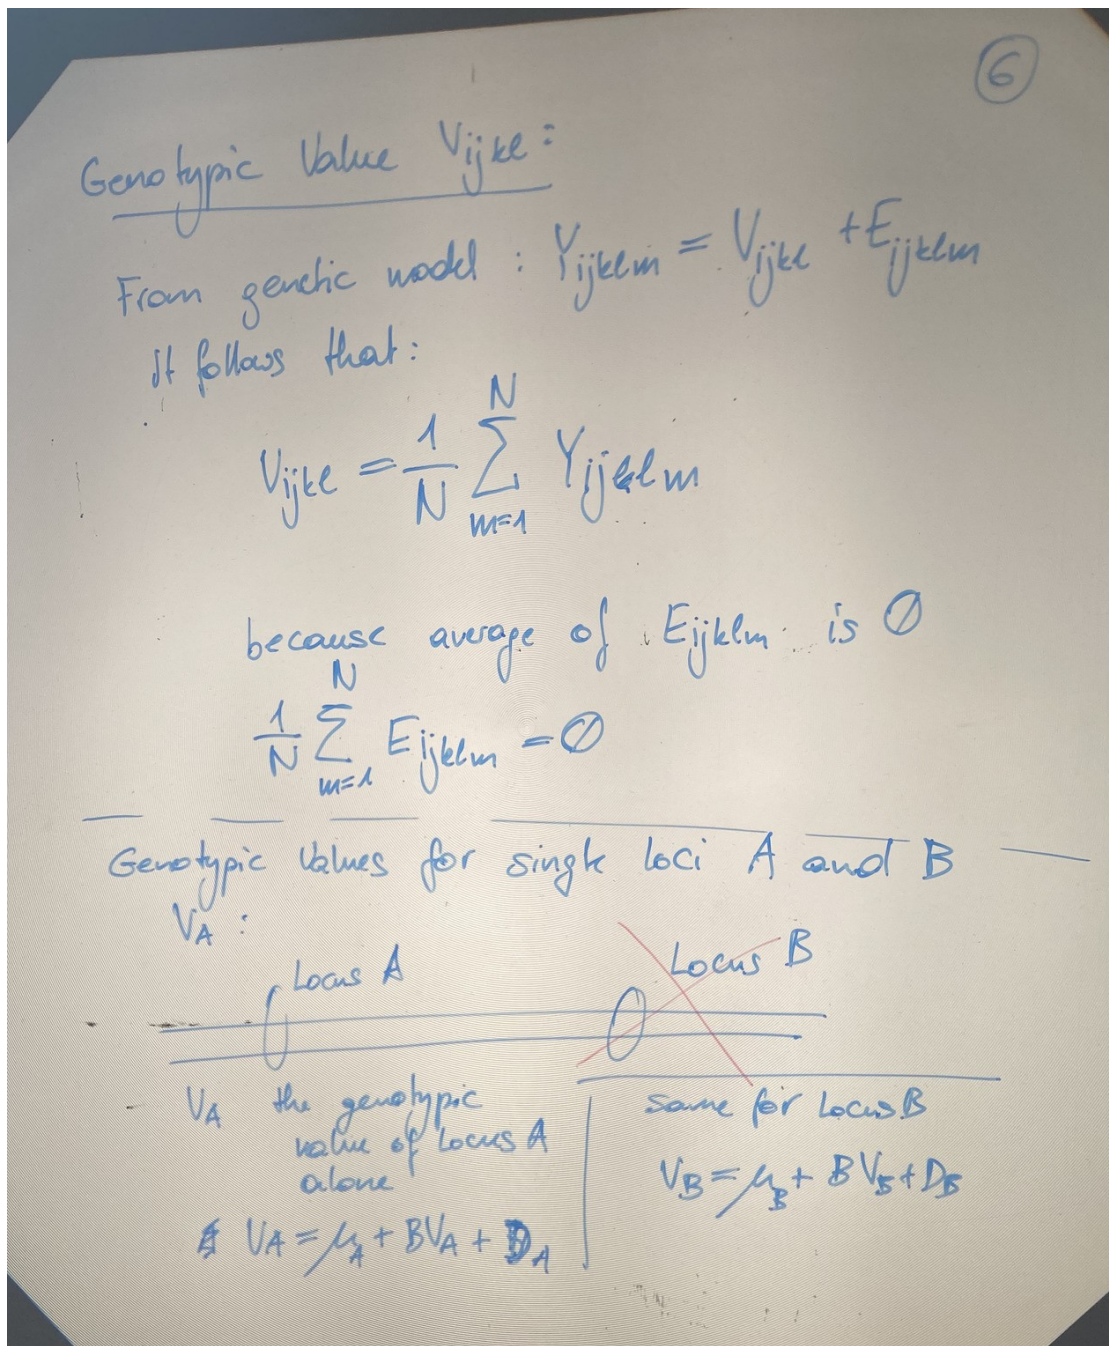 6
Genotypic Value Vijkl :
From genetic model : Yijklm = Vijkl + Eijklm
It follows that :
Vijkl = 1/N N∑m=1 Yijklm
because average of Eijklm is ∅
1/N N∑m=1 Eijklm = ∅
Genotypic Values for single loci A and B
VA :
Locus A
Locus B
VA the genotypic
value of Locus A
alone
VA = μA + BVA + DA
same for Locus B
VB = μB + BVB + DB